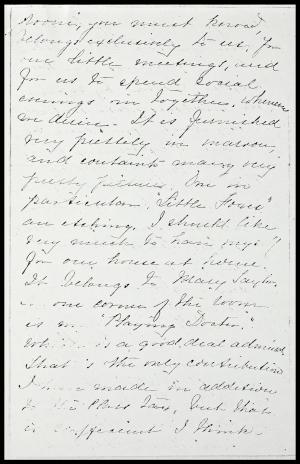 room, you must know,
belongs exclusively to us, for
our little meetings, and
for us to spend social
evenings in together, whenever
we desire. It is furnished
very prettily in maroon,
and contains many very
pretty pictures. One in
particular, "Little Foxes"
an etching, I should like
very much to have
for our house at home.
It belongs to Mary Taylor.
in one corner of the room
is my "Playing Doctor."
which is a good deal admired.
That is the only contribution
I have made in addition
to the Class Tax, but that
is sufficient I think.